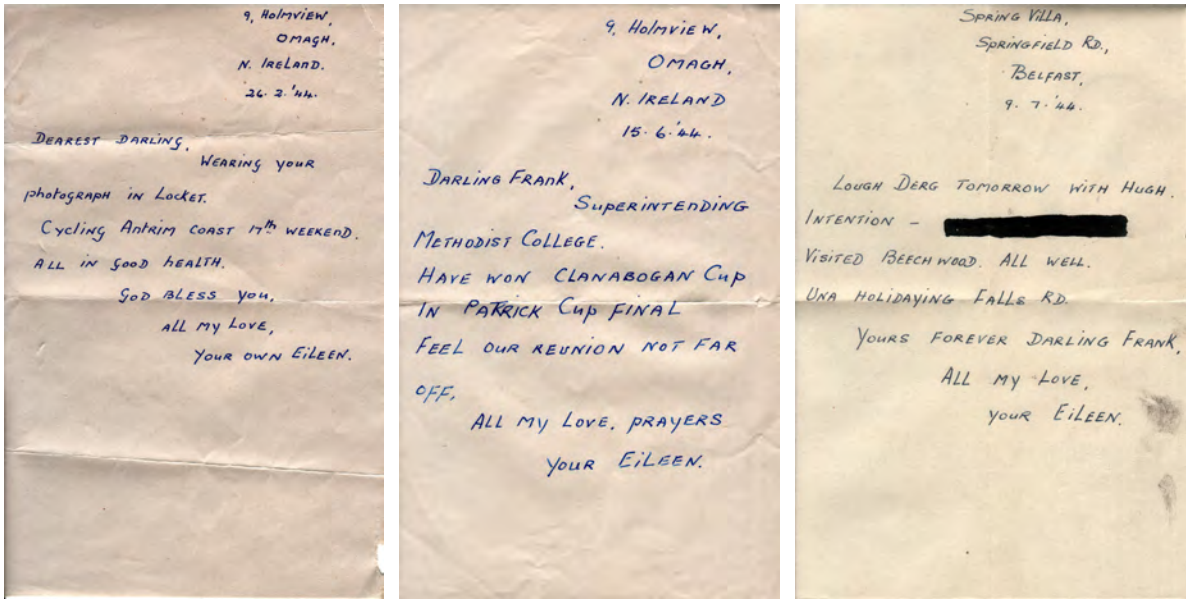 9, HOLMVIEW,
OMAGH,
N. IRELAND.
26. 2. '44.
DEAREST DARLING,
WEARING YOUR
PHOTOGRAPH IN LOCKET.
CYCLING ANTRIM COAST 17th WEEKEND.
ALL IN GOOD HEALTH.
GOD BLESS YOU,
ALL MY LOVE,
YOUR OWN EILEEN.
9, HOLMVIEW,
OMAGH,
N. IRELAND
15. 6. '44.
DARLING FRANK,
SUPERINTENDING
METHODIST COLLEGE.
HAVE WON CLANABOGAN CUP
IN PATRICK CUP FINAL
FEEL OUR REUNION NOT FAR
OFF.
ALL MY LOVE, PRAYERS
YOUR EILEEN.
SPRING VILLA,
SPRINGFIELD RD.,
BELFAST,
9. 7. '44.
LOUGH DERG TOMORROW WITH HUGH.
INTENTION –
VISITED BEECHWOOD. ALL WELL.
UNA HOLIDAYING FALLS RD.
YOURS FOREVER DARLING FRANK,
ALL MY LOVE,
YOUR EILEEN.